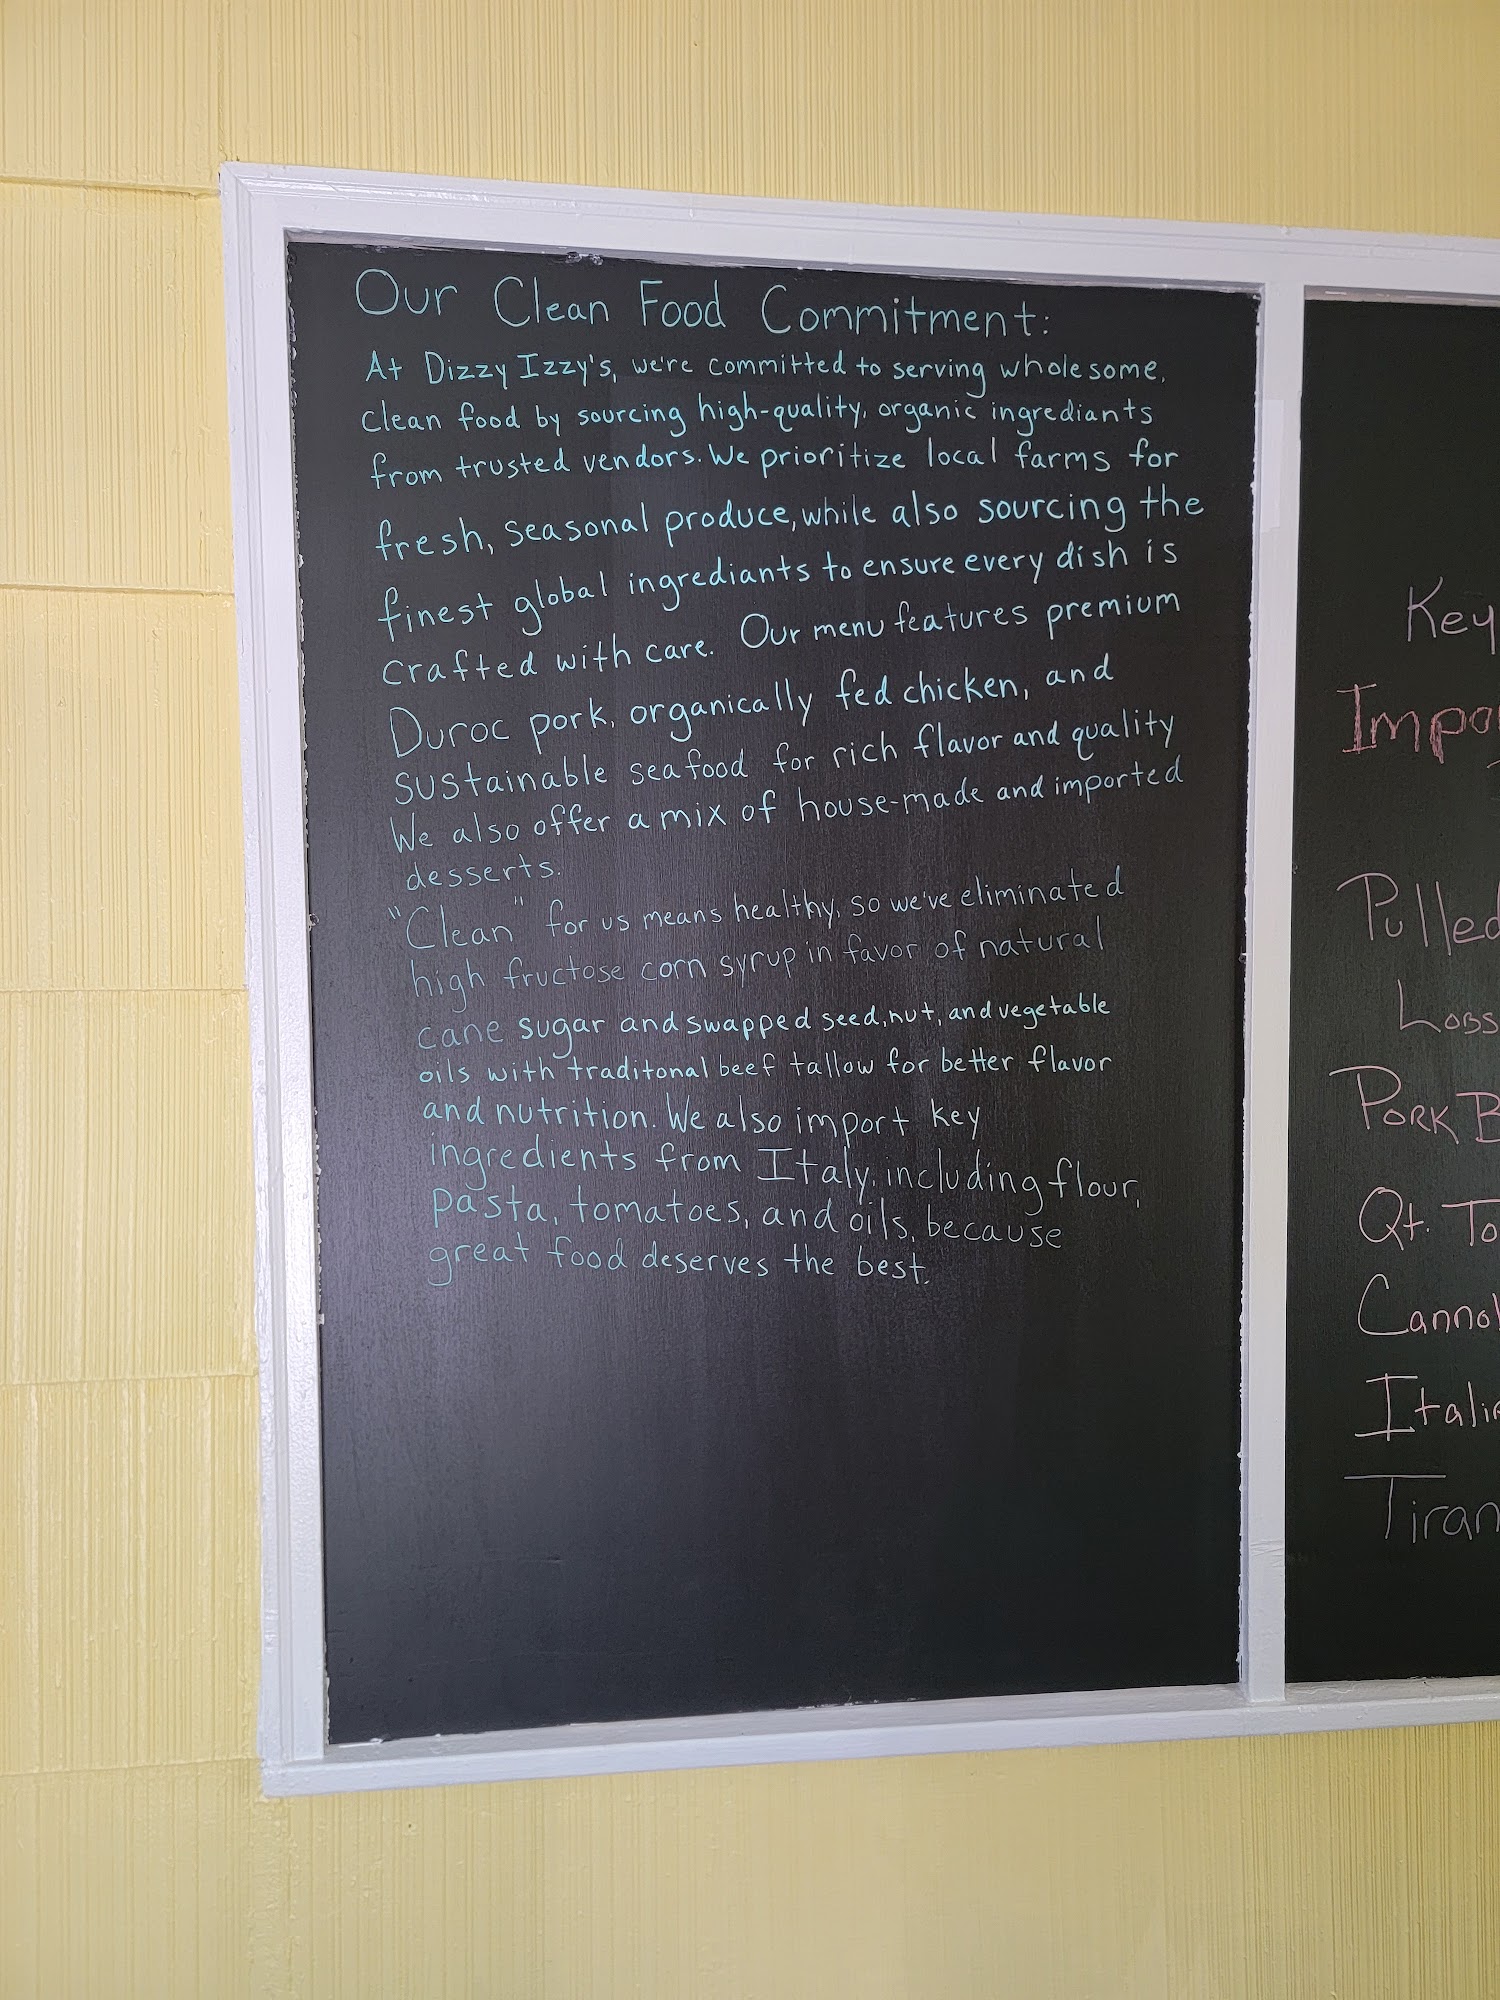 Our Clean Food Commitment:
At Dizzy Izzy's, we're committed to serving wholesome,
clean food by sourcing high-quality, organic ingrediants
from trusted vendors. We prioritize local farms for
fresh, seasonal produce, while also sourcing the
finest global ingrediants to ensure every dish is
crafted with care. Our menu features premium
Duroc pork, organically fed chicken, and
sustainable seafood for rich flavor and quality
We also offer a mix of house-made and imported
desserts.
"Clean" for us means healthy, so we've eliminated
high fructose corn syrup in favor of natural
cane sugar and swapped seed, nut, and vegetable
oils with traditonal beef tallow for better flavor
and nutrition. We also import key
ingredients from Italy, including flour,
pasta, tomatoes, and oils, because
great food deserves the best.
Key
Impo
Pulled
Lobs
Pork B
Qt. To
Canno
Itali
Tiram